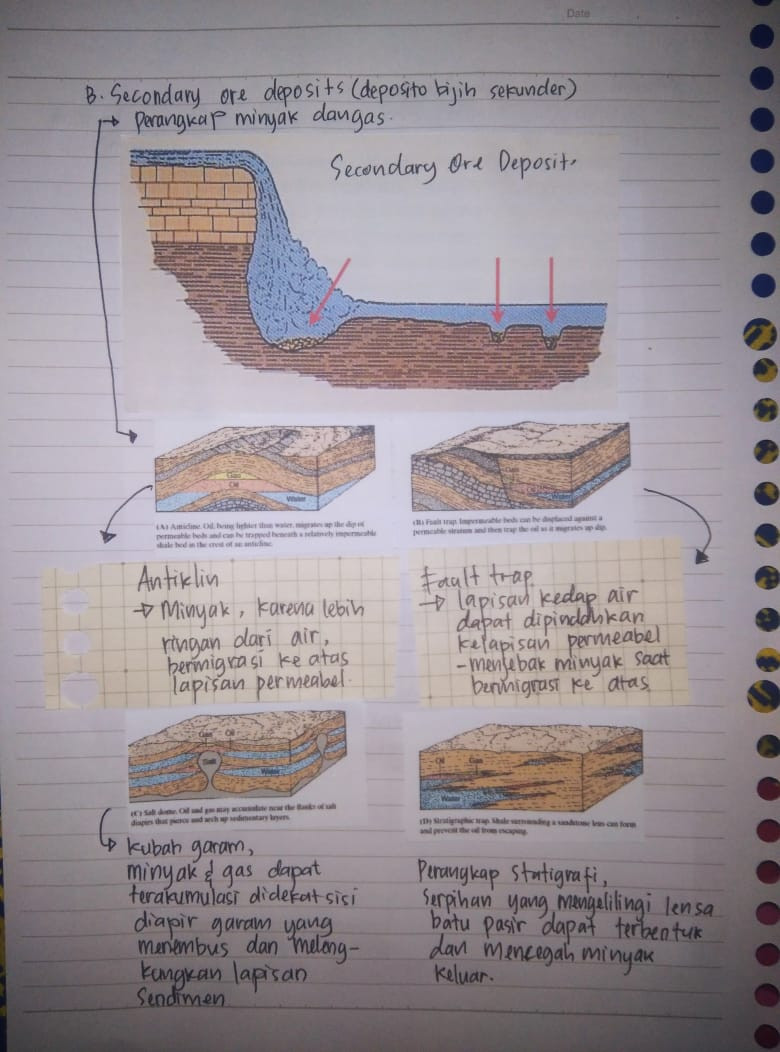 Date
B. Secondary ore deposits (deposito bijih sekunder)
perangkap minyak dan gas.
Secondary Ore Deposit.
Gas
Oil
Water
(A) Anticline. Oil, being lighter than water, migrates up the dip of
permeable beds and can be trapped beneath a relatively impermeable
shale bed in the crest of an anticline.
Gas
Oil
Water
(B) Fault trap. Impermeable beds can be displaced against a
permeable stratum and then trap the oil as it migrates up dip.
Antiklin
Minyak, karena lebih
ringan dari air,
bermigrasi ke atas
lapisan permeabel.
Fault trap
lapisan kedap air
dapat dipindahkan
kelapisan permeabel
- menjebak minyak saat
bermigrasi ke atas
Gas Oil
Salt
Water
(C) Salt dome. Oil and gas may accumulate near the flanks of salt
diapirs that pierce and arch up sedimentary layers.
Oil Gas
Water
(D) Stratigraphic trap. Shale surrounding a sandstone lens can form
and prevent the oil from escaping.
kubah garam,
minyak & gas dapat
terakumulasi didekat sisi
diapir garam yang
menembus dan meleng-
kungkan lapisan
Sendimen
Perangkap Statigrafi,
Serpihan yang mengelilingi lensa
batu pasir dapat terbentuk
dan mencegah minyak
keluar.